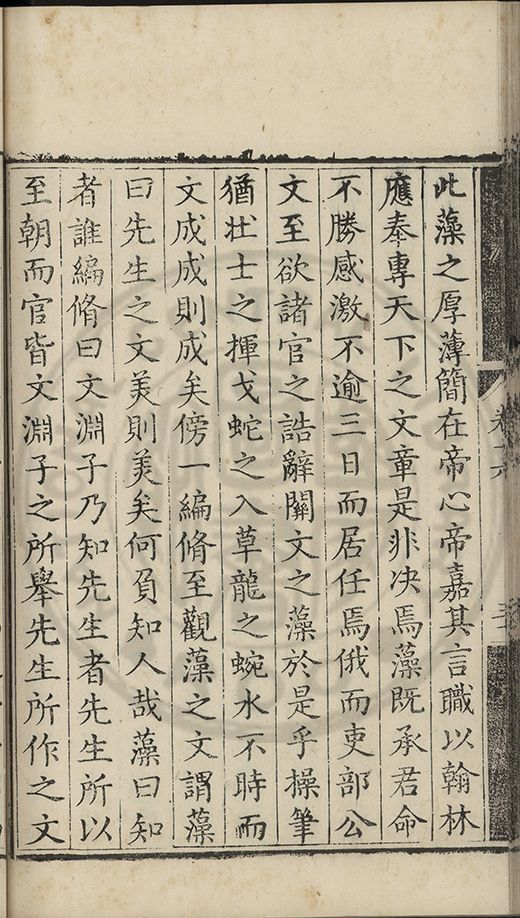 此藻之厚薄簡在帝心帝嘉其言職以翰林
應奉專天下之文章是非决焉藻既承君命
不勝感激不逾三日而居任焉俄而吏部公
文至欲諸官之誥辭關文之藻於是乎操筆
猶壯士之揮戈蛇之入草龍之蜿水不時而
文成成則成矣傍一編脩至觀藻之文謂藻
曰先生之文美則美矣何負知人哉藻曰知
者誰編脩曰文淵子乃知先生者先生所以
至朝而官皆文淵子之所舉先生所作之文